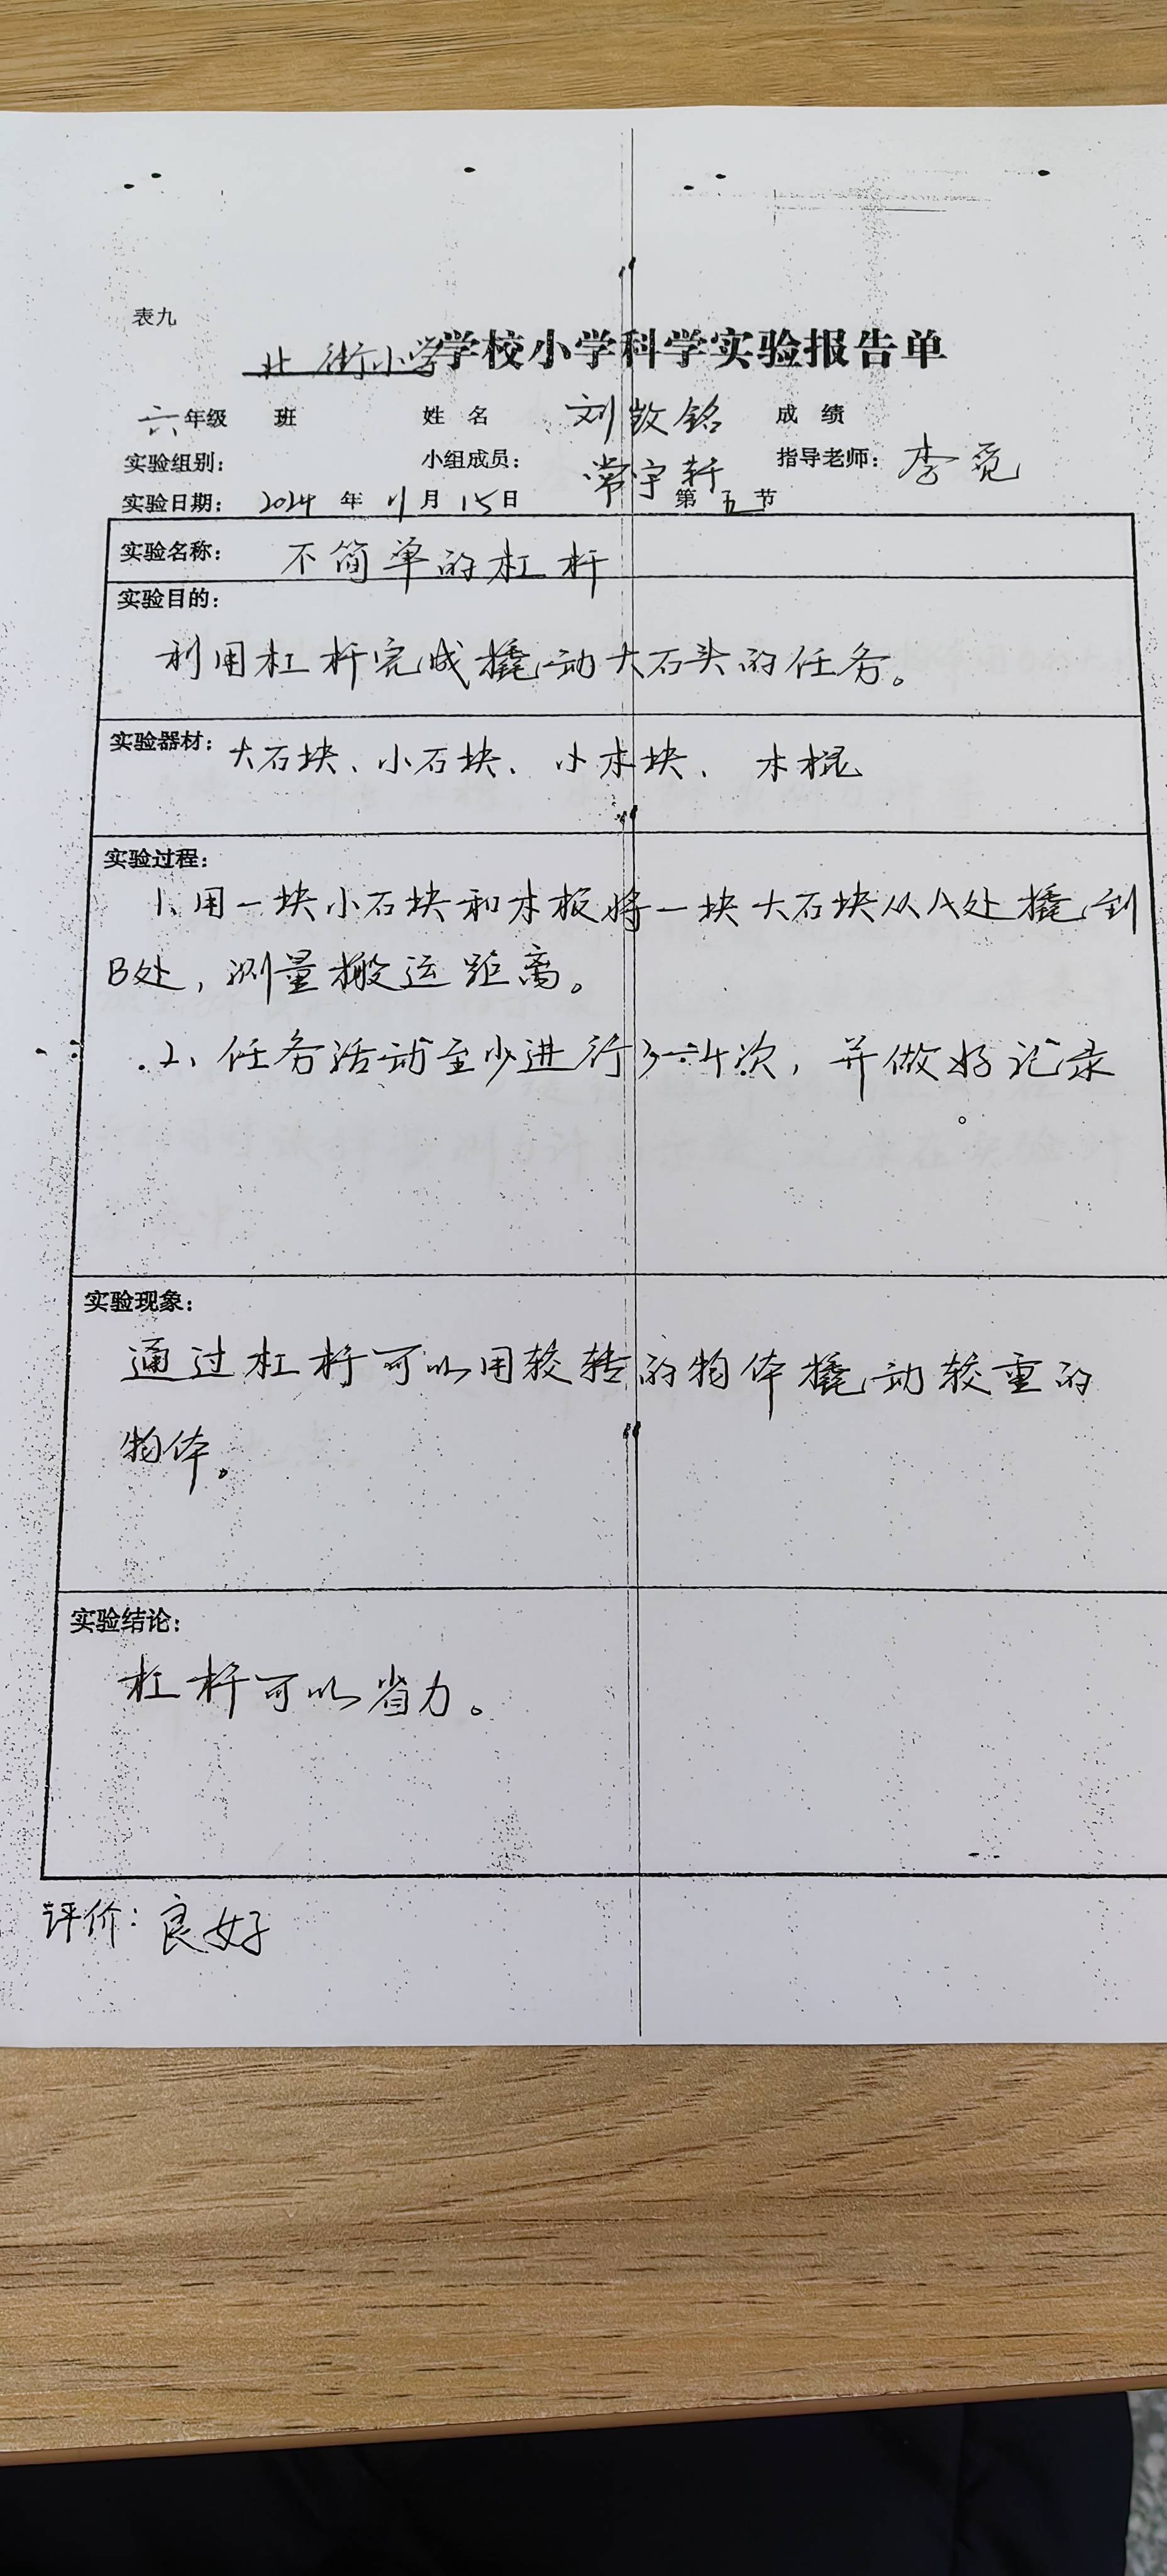 表九
北街小学学校小学科学实验报告单
六年级 班 姓名 刘政铭 成绩
实验组别： 小组成员： 常宇轩 指导老师： 李觅
实验日期： 2024 年 11 月 15 日 第 五 节
实验名称： 不简单的杠杆
实验目的：
利用杠杆完成撬动大石头的任务。
实验器材： 大石块、小石块、小木块、木棍
实验过程：
1、用一块小石块和木板将一块大石块从A处撬到
B处，测量搬运距离。
2、任务活动至少进行3—4次，并做好记录
。
实验现象：
通过杠杆可以用较轻的物体撬动较重的
物体。
实验结论：
杠杆可以省力。
评价：良好